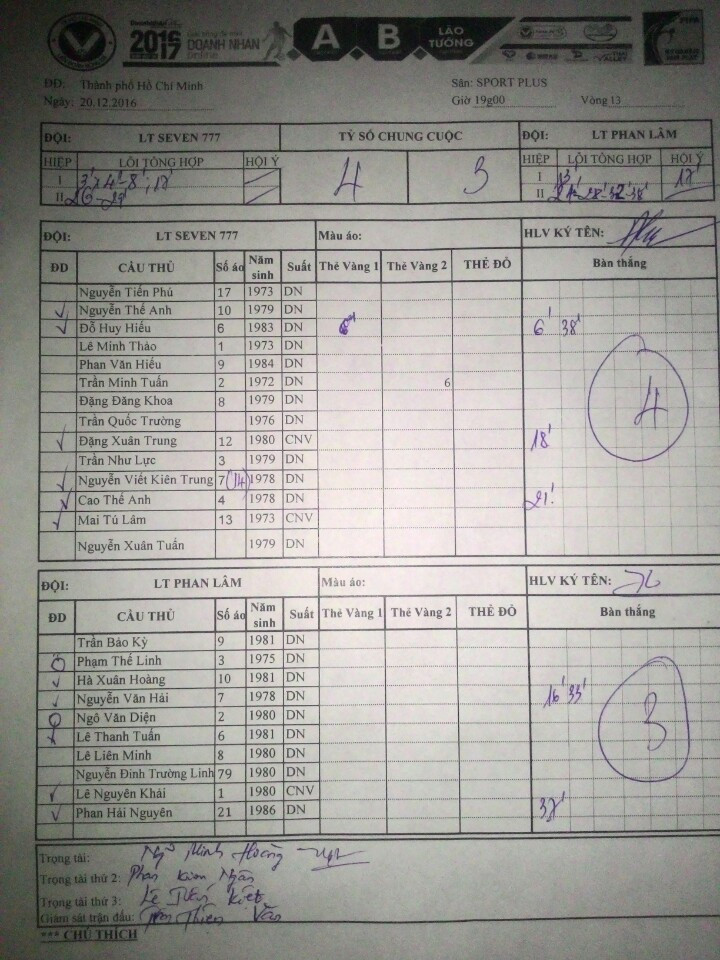 2016 2017 DOANH NHAN Online A B LÃO TƯỚNG
ĐĐ: Thành phố Hồ Chí Minh Sân: SPORT PLUS
Ngày: 20.12.2016 Giờ 19g00 Vòng 13
ĐỘI: LT SEVEN 777 TỶ SỐ CHUNG CUỘC ĐỘI: LT PHAN LÂM
HIỆP LỖI TỔNG HỢP HỘI Ý 4 3 HIỆP LỖI TỔNG HỢP HỘI Ý
I I 13' 17'
II II
ĐỘI: LT SEVEN 777 Màu áo: HLV KÝ TÊN:
ĐD CẦU THỦ Số áo Năm sinh Suất Thẻ Vàng 1 Thẻ Vàng 2 THẺ ĐỎ Bàn thắng
Nguyễn Tiến Phú 17 1973 DN
Nguyễn Thế Anh 10 1979 DN
Đỗ Huy Hiếu 6 1983 DN 6' 38'
Lê Minh Thảo 1 1973 DN
Phan Văn Hiếu 9 1984 DN
Trần Minh Tuấn 2 1972 DN 6
Đặng Đăng Khoa 8 1979 DN 4
Trần Quốc Trường 1976 DN
Đặng Xuân Trung 12 1980 CNV 18'
Trần Như Lực 3 1979 DN
Nguyễn Viết Kiên Trung 7 (14) 1978 DN
Cao Thế Anh 4 1978 DN 21'
Mai Tú Lâm 13 1973 CNV
Nguyễn Xuân Tuấn 1979 DN
ĐỘI: LT PHAN LÂM Màu áo: HLV KÝ TÊN:
ĐD CẦU THỦ Số áo Năm sinh Suất Thẻ Vàng 1 Thẻ Vàng 2 THẺ ĐỎ Bàn thắng
Trần Bảo Kỳ 9 1981 DN
Phạm Thế Linh 3 1975 DN
Hà Xuân Hoàng 10 1981 DN 16' 33'
Nguyễn Văn Hải 7 1978 DN
Ngô Văn Diện 2 1980 DN 3
Lê Thanh Tuấn 6 1981 DN
Lê Liên Minh 8 1980 DN
Nguyễn Đình Trường Linh 79 1980 DN
Lê Nguyên Khải 1 1980 CNV
Phan Hải Nguyên 21 1986 DN 37'
Trọng tài: Ngô Minh Hoàng
Trọng tài thứ 2: Phan Kim Ngân
Trọng tài thứ 3: Lê Kiệt
Giám sát trận đấu: Thiện Văn
*** CHÚ THÍCH